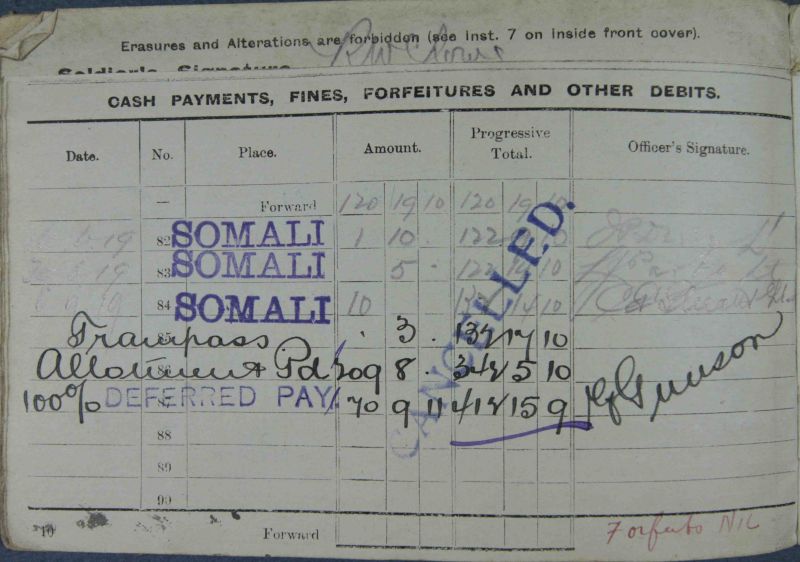 Erasures and Alterations are forbidden (see Inst. 7 on inside front cover).
Soldier's Signature
CASH PAYMENTS, FINES, FORFEITURES AND OTHER DEBITS.
Date. No. Place. Amount. Progressive Total. Officer's Signature.
— Forward 120 19 10 120 19 10
19 82 SOMALI 1 10 . 122 10
19 83 SOMALI 5 - 122 14 10
19 84 SOMALI 10 132 14 10
Trampass 85 . 3 . 132 17 10
Allotment Pd 209 8 . 342 5 10
100% DEFERRED PAY. 70 9 11 412 15 9 Gunson
CANCELLED.
88
89
90
10 Forward
Forfeits NIL